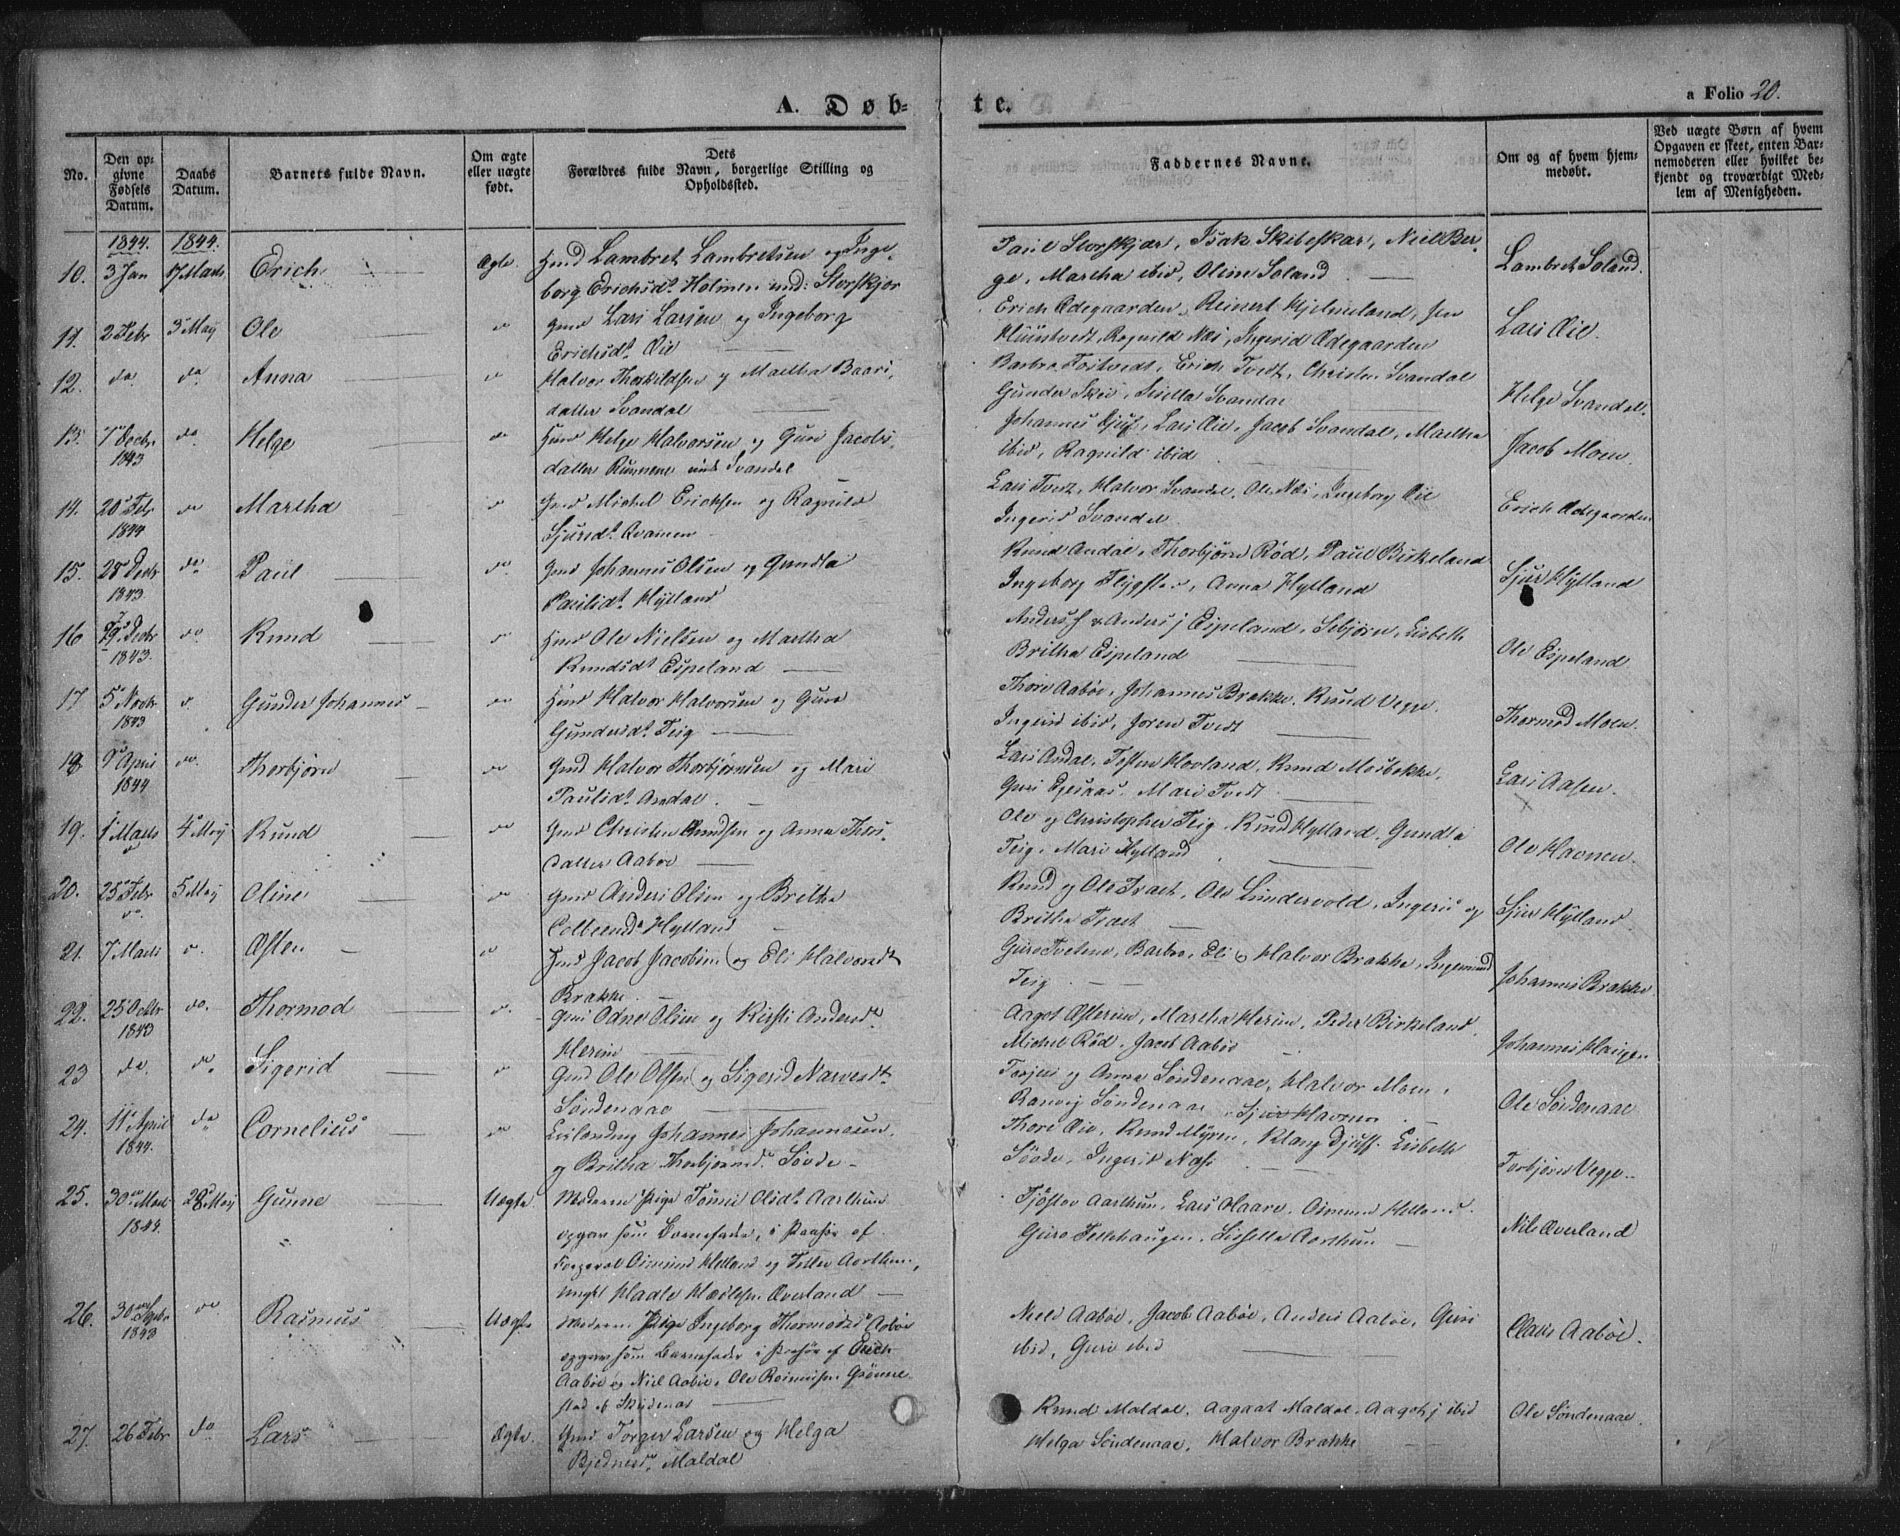 A. Døb-
te.
a Folio 20.
No.
Den op-
givne
Fødsels
Datum.
Daabs
Datum.
Barnets fulde Navn.
Om ægte
eller uægte
født.
Dets
Forældres fulde Navn, borgerlige Stilling og
Opholdssted.
Faddernes Navne.
Om og af hvem hjem-
medøbt.
Ved uægte Børn af hvem
Opgaven er skeet, enten Bar-
nemoderen eller hvilket be-
kjendt og troværdigt Med-
lem af Menigheden.
1844. 1844.
10. 3 Jan 17 Marts Erich Ægte. Lambret Lambretsen og Inge-
borg Erichsdt. Holmen und: Storskjør
Paul Storskjær, Isak Skibeskar, Niel Ber-
ge, Martha ibid, Oline Soland
Lambret Soland.
11. 2 Febr 3 May Ole do Gmd Lars Larsen og Ingeborg
Erichsdt. Øie
Erich Ødegaarden, Reinert Hjelmeland,
Ragnild Næs, Ingerid Ødegaarden
Lars Øie.
12. do do Anna do Halvor Thorkildsen og Martha Baars-
datter Svandal
Barbro Tostvedt, Erich Tvedt, Christen Svandal
Gunder Skei, Sisella Svandal
Helge Svandal.
13. 7 Decbr 1843 do Helge do Helge Halvorsen og Guri Jacobs-
datter Rønnene und Svandal
Johannes Djuf, Lars Øie, Jacob Svandal, Martha
ibid, Ragnild ibid
Jacob Moen.
14. 20 Febr 1844 do Martha do Gmd Michel Erichsen og Ragnild
Sjursdt. Qvamen
Lars Tvedt, Halvor Svandal, Ole Næs, Ingeborg Øie
Ingerid Svandal
Erich Ødegaarden
15. 28 Decbr 1843 do Paul do Gmd Johannes Olsen og Gundla
Paulsdt. Hylland
Knud Andal, Thorbjørn Rød, Paul Birkeland
Ingeborg, Anna Hylland
Sjur Hylland
16 Decbr 1843. do Knud do Ole Nielsen og Martha
Knudsdt Espeland
Anders Espeland, Sebjørn, Lisbeth
Britha Espeland
Ole Espeland
17 5 Novbr 1843 do Gunder Johannes do Halvor Halvorsen og Guro
Gundersdt. Teig
Thore Aabøe, Johannes Brakke, Knud Vegge,
Ingerid ibid, Joren Tvedt
Thormod Moen.
18 9 April 1844 do. Thorbjørn do Gmd Halvor Thorbjørnsen og Mari
Paulsdt. Andal.
Lars Andal, Tosten Hovland, Knud Mosbekke,
Guri, Mari Tvedt
Lars Aasen.
19. 1 Marts do 4 May Knud do Gmd Christen Knudsen og Anna Thors-
datter Aabøe
Ole og Christopher Teig, Knud Hylland, Gundla
Teig, Mari Hylland
Ole Havnen.
20. 25 Febr do 5 May Oline do Gmd Anders Olsen og Britha
Hylland
Knud og Ole Traet, Ole Lundevold, Ingerid og
Britha Traet
Sjur Hylland.
21. 7 Marts do Østen do Jacob Jacobsen og Eli Halvorsdt
Brakke
Guro Tveten, Barbro, Eli og Halvor Brakke, Ingemund
Teig
Johannes Brakke
22. 25 Octbr 1843 do. Thormod do. Odne Olsen og Kirsti Andersdt.
Herim
Aagot, Martha Herim, Peder Birkeland
Michel Rød, Jacob Aabøe
Johannes
23 do. do Sigerid do Gmd Ole Olsen og Sigerid Narvesdt.
Søndenaae
Torjus og Anna Søndenaae, Halvor Moen,
Ranveig Søndenaae, Sjur Havnen
Ole Søndenaae
24. 11 April 1844. do Cornelius do Johannes Johannesen
og Britha Thorbjørnsd. Søvde
Thore Øie, Knud Myren, Djuff. Lisbeth
Søvde, Ingerid Næss
Torbjørn Vegge.
25. 30 Marts 1844. 28 May Gunne Uægte. Moderen Pige Tonni Olsdt. Aarthun
opgav som Barnefader, i Paahør af
Osmund Helland og Aarthun,
ungkl Hadle Hadlesen Øverland
Tjøstov Aarthun, Lars Haare, Osmund Helland.
Guro, Lissella Aarthun
Nils Øverland
26. 30 Septbr 1843 do Rasmus Uægte Moderen Pige Ingeborg Thormodsdt Aabøe
opgav som Barnefader i Paahør af
Aabøe og Niel Aabøe, Ole Rasmussen Grønne-
stad af Skudenæs
Niels Aabøe, Jacob Aabøe, Anders Aabøe, Guri
ibid, Guri ibid
Aabøe.
27. 26 Febr do Lars Ægte. Gmd Torger Larsen og Helga
Maldal
Knud Maldal, Aagaat Maldal, Aagot ibid
Helga Søndenaae, Halvor Brakke
Ole Søndenaae.